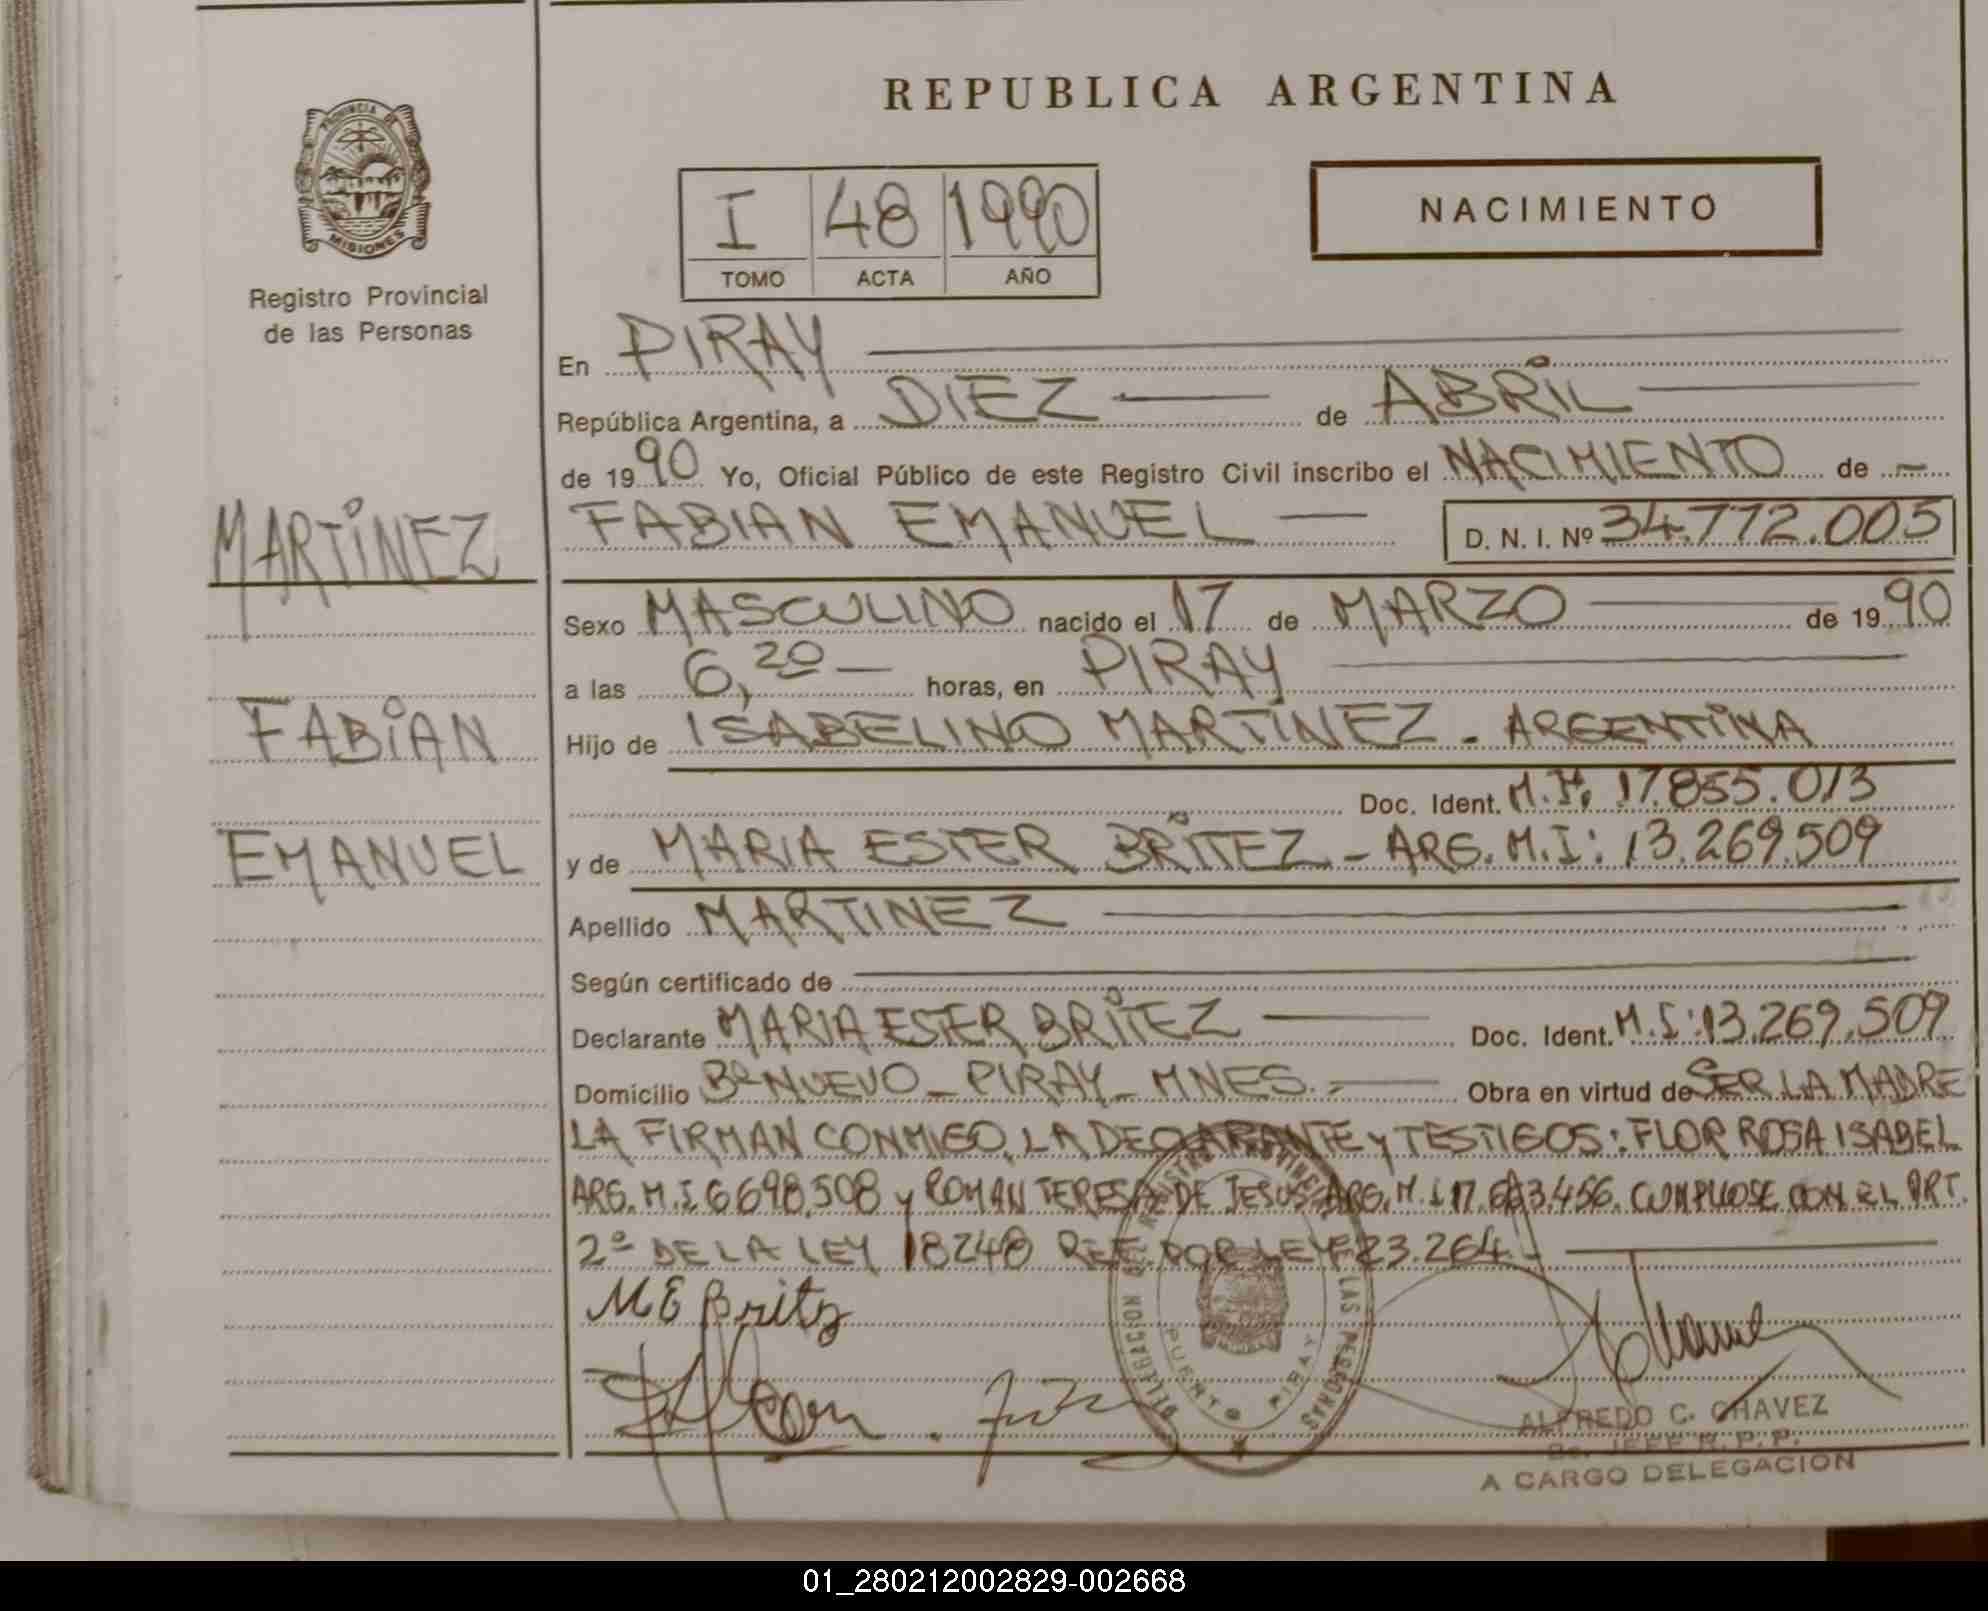 REPUBLICA ARGENTINA
PROVINCIA DE MISIONES
Registro Provincial
de las Personas
I 48 1990
TOMO ACTA AÑO
NACIMIENTO
En PIRAY
República Argentina, a DIEZ de ABRIL
de 1990 Yo, Oficial Público de este Registro Civil inscribo el NACIMIENTO de
MARTINEZ
FABIAN EMANUEL D. N. I. Nº 34.772.005
Sexo MASCULINO nacido el 17 de MARZO de 1990
a las 6,20 horas, en PIRAY
FABIAN
Hijo de ISABELINO MARTINEZ - ARGENTINA
Doc. Ident. M.I. 17.855.013
EMANUEL
y de MARIA ESTER BRITEZ - ARG. M.I: 13.269.509
Apellido MARTINEZ
Según certificado de
Declarante MARIA ESTER BRITEZ Doc. Ident. M.I: 13.269.509
Domicilio Bº NUEVO - PIRAY - MNES. Obra en virtud de SER LA MADRE
LA FIRMAN CONMIGO, LA DECLARANTE y TESTIGOS: FLOR ROSA ISABEL
ARG. M.I. 6698.508 y ROMAN TERESA DE JESUS ARG. M.I. CUMPLIOSE CON EL ART.
2º DE LA LEY 18248 REF. POR LEY 23.264.-
M E Britz
DELEGACION DEL REGISTRO PROVINCIAL DE LAS PERSONAS
PUERTO PIRAY
ALFREDO C. CHAVEZ
JEFE R. P. P.
A CARGO DELEGACION
01_280212002829-002668